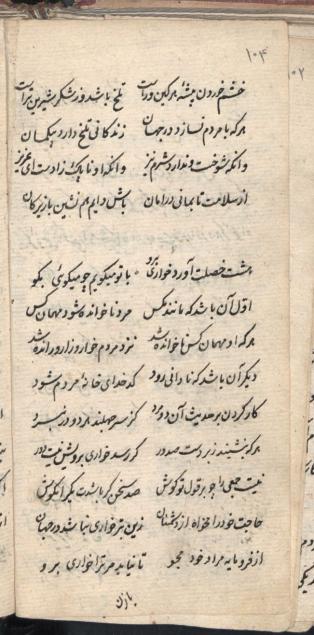 ۱۰۴
خشم خوردن پیشهٔ هر کین وراست تلخ باشد وز شکر شیرین تراست
هر که با مردم نسازد در جهان زندکانی تلخ دارد بیکمان
وانکه شوخست و ندارد شرم نیز وانکه او ناپاک زادست ای عزیز
از سلامت تا بمانی در امان باش دایم هم نشین بازیرکان
هشت خصلت آورد خواری برو با تو میکویم چو میکوئی بکو
اول آن باشد که مانند مکس مرد ناخوانده شود مهمان کس
هر که او مهمان کس ناخوانده شد نزد مردم خوار و زار و رانده شد
دیکر آن باشد که نادانی رود کدخدای خانهٔ مردم شود
کار کردن بر حدیث آن دو مرد کز سر جهلند هر دو در نبرد
هر که بنشیند زبردست صدور کر رسد خواری برویش نیست دور
نیست جمعی را چو بر قول تو کوش صد سخن کر باشدت یکرا مکوش
حاجت خود را مخواه از دشمنان زین بتر خواری نباشد در جهان
از فرومایه مراد خود مجو تا نیاید مر ترا خواری برو